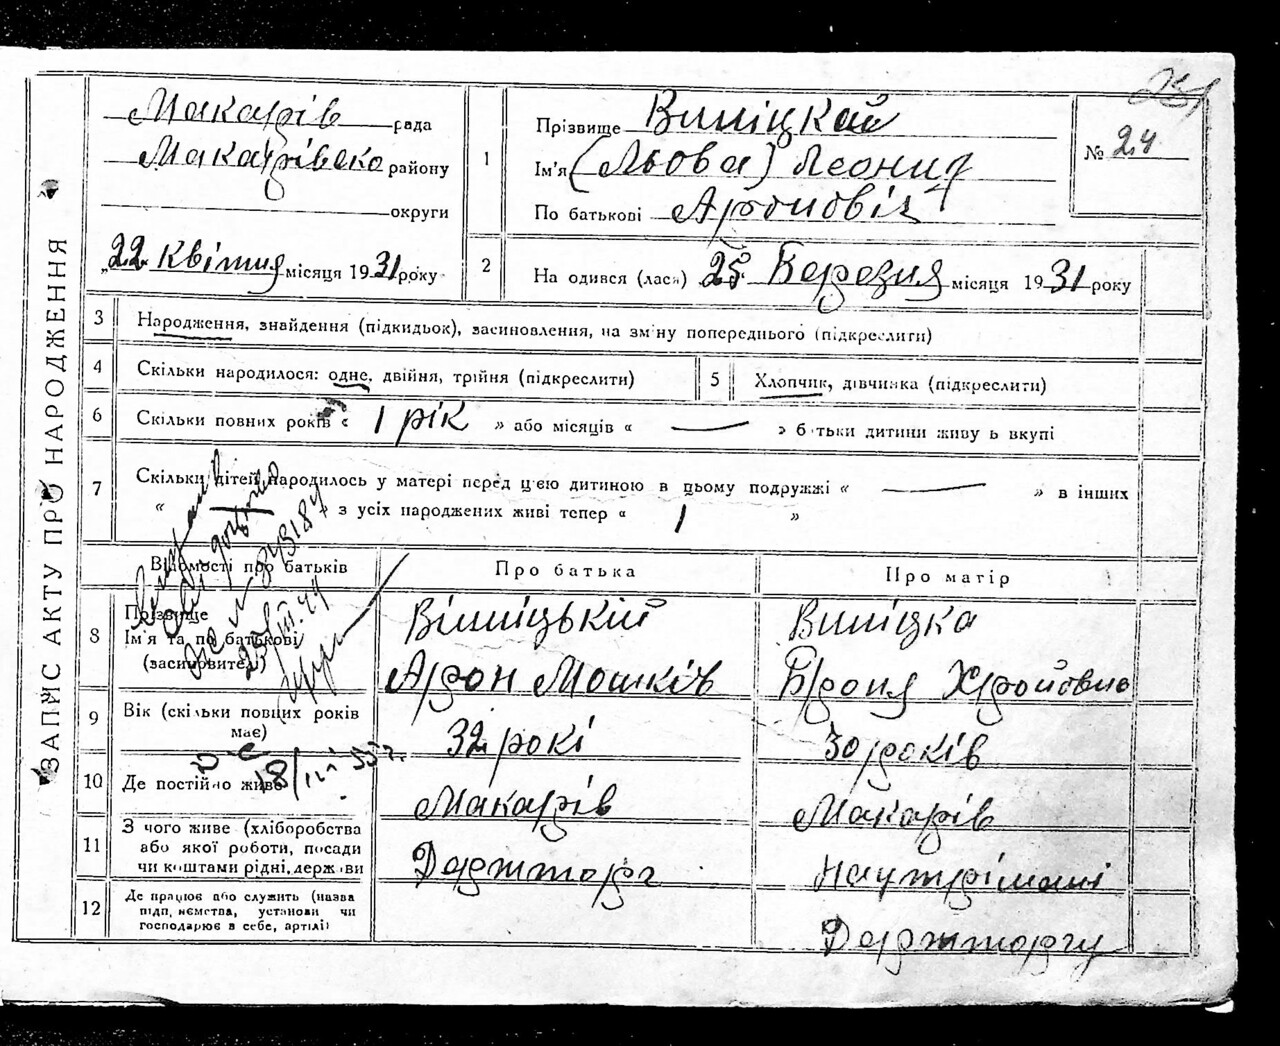 ЗАПИС АКТУ ПРО НАРОДЖЕННЯ
231
Макарів рада
Макарівско району
округи
„22 Квітня місяця 1931 року
1
Прізвище Виніцкий
Ім'я (Льова) Леонид
По батькові Ароновіч
№ 24
2
На одився (лася) 25 Березня місяця 1931 року
3 Народження, знайдення (підкидьок), засиновлення, на зміну попереднього (підкреслити)
4 Скільки народилося: одне, двійня, трійня (підкреслити)
5 Хлопчик, дівчинка (підкреслити)
6 Скільки повних років « 1 рік » або місяців « — » батьки дитини живуть вкупі
7 Скільки дітей народилось у матері перед цією дитиною в цьому подружжі « — » в інших
« — » з усіх народжених живі тепер « 1 »
Відомості про батьків
Про батька
Про матір
8 Прізвище
Ім'я та по батькові
(засиновителі)
Вініцький
Арон Мошків
Виніцка
Броня Хройовна
9 Вік (скільки повних років має)
32 рокі
30 років
10 Де постійно живе
Макарів
Макарів
18/III 55 г.
11 З чого живе (хліборобства
або якої роботи, посади
чи коштами рідні, держави
Держторг
Наутрімані
12 Де працює або служить (назва
підп, ємства, установи чи
господарює в себе, артілі)
Держторгу